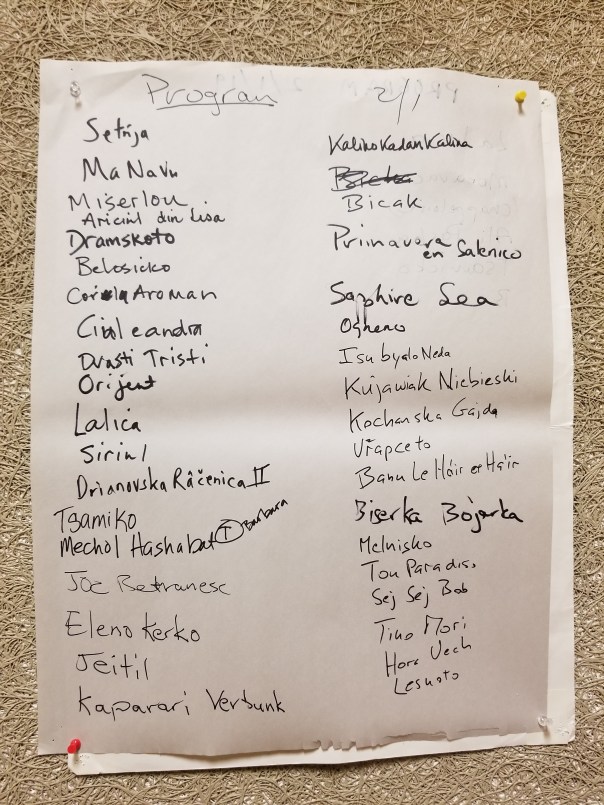 Program 2/1
Setnja
Ma Navu
Miserlou
Ariciul din Lisa
Dramskoto
Belosicko
Coriola Aroman
Ciuleandra
Drasti Tristi
Orijent
Lalica
Sirinl
Drianovska Râčenica II
Tsamiko
Mechol Hashabat T Barbara
Joc Batranesc
Eleno Kerko
Jeitil
Kaparari Verbunk
Kalino Kadan Kalina
Bicak
Primavera
en Salonico
Sapphire Sea
Ogneno
Isu byalo Neda
Kujawiak Niebieski
Kochanska Gajda
Vrapceto
Banu Le Hóir et Háir
Biserka Bojarka
Melnisko
Tou Paradiso
Sej Sej Bob
Tino Mori
Hora Vech
Lesnoto